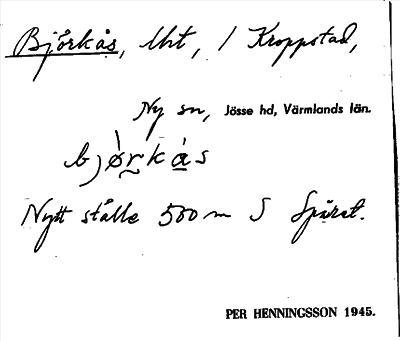 Björkås, lht, / Kroppstad,
Ny sn, Jösse hd, Värmlands län.
bjø̀r̰kás
Nytt ställe 500 m S
PER HENNINGSSON 1945.